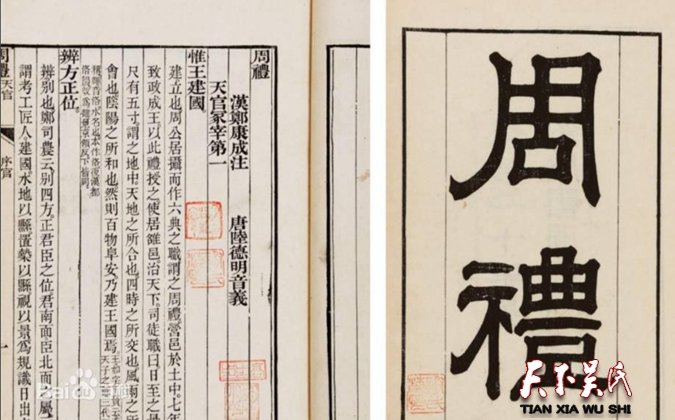 周禮
周禮
漢鄭康成注 唐陸德明音義
天官冢宰第一
惟王建國
建立也周公居攝而作六典之職謂之周禮營邑於土中七年
致政成王以此禮授之使居雒邑治天下司徒職曰日至之景
尺有五寸謂之地中天地之所合也四時之所交也風雨之所
會也陰陽之所和也然則百物阜安乃建王國焉
辨方正位
辨別也鄭司農云別四方正君臣之位君南面臣北面之屬
謂考工匠人建國水地以縣置槷以縣視以景爲規識日出
周禮 天官 序官 一
Baidu百科
天下吴氏
TIAN XIA WU SHI